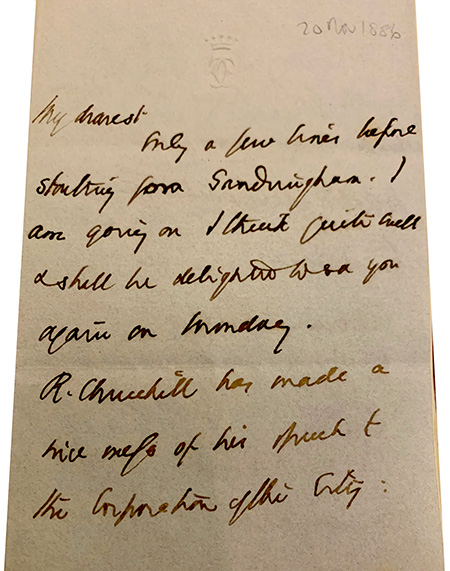 20 Nov 1886
My dearest
Only a few lines before
starting for Sandringham. I
am going on I think quite well
& shall be delighted to see you
again on Monday.
R. Churchill has made a
nice mess of his speech to
the Corporation of the City: